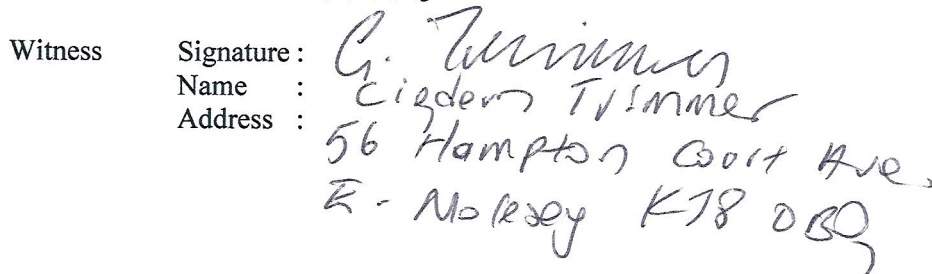 Witness Signature : C. Trimmer
Name : Cigdem Trimmer
Address :
56 Hampton Court Ave.
E. Molesey KT8 0BQ